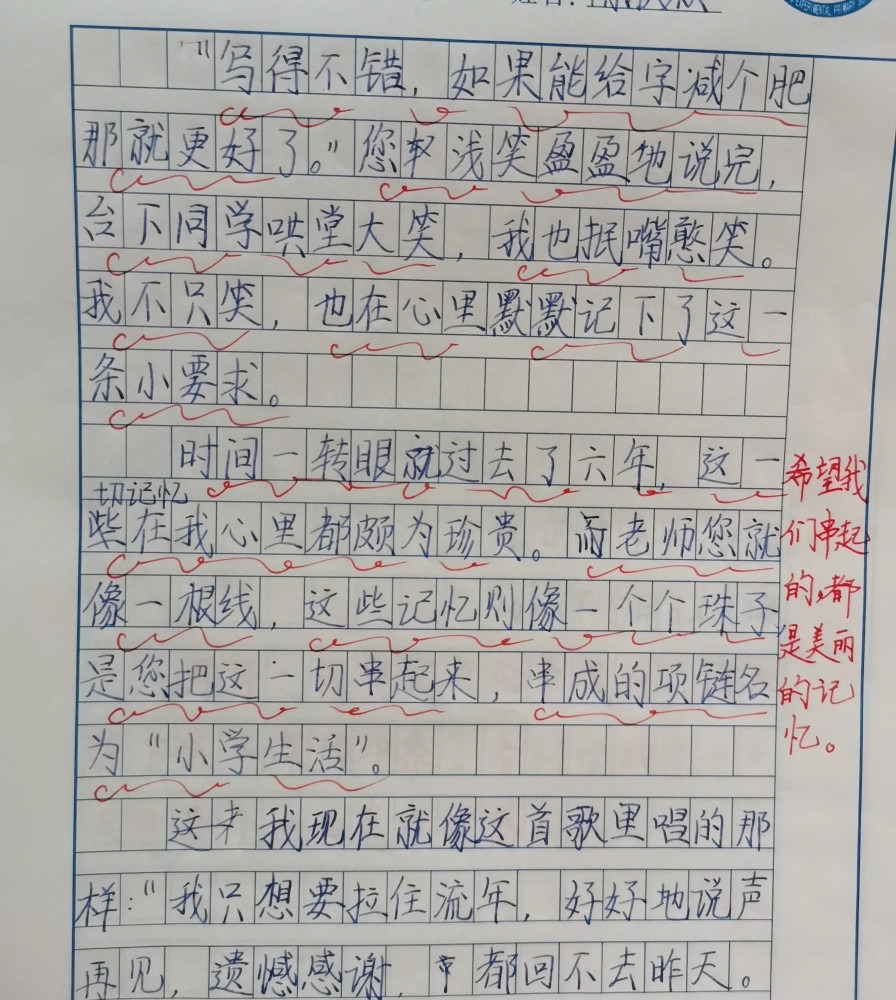 姓名：
EXPERIMENTAL PRIMARY
"写得不错，如果能给字减个肥
那就更好了。"您浅笑盈盈地说完，
台下同学哄堂大笑，我也抿嘴憨笑。
我不只笑，也在心里默默记下了这一
条小要求。
时间一转眼就过去了六年，这一
切记忆
些在我心里都颇为珍贵。而老师您就
像一根线，这些记忆则像一个个珠子
是您把这一切串起来，串成的项链名
为"小学生活"。
这来我现在就像这首歌里唱的那
样："我只想要拉住流年，好好地说声
再见，遗憾感谢，都回不去昨天。
希望我
们串起
的，都
是美丽
的记
忆。